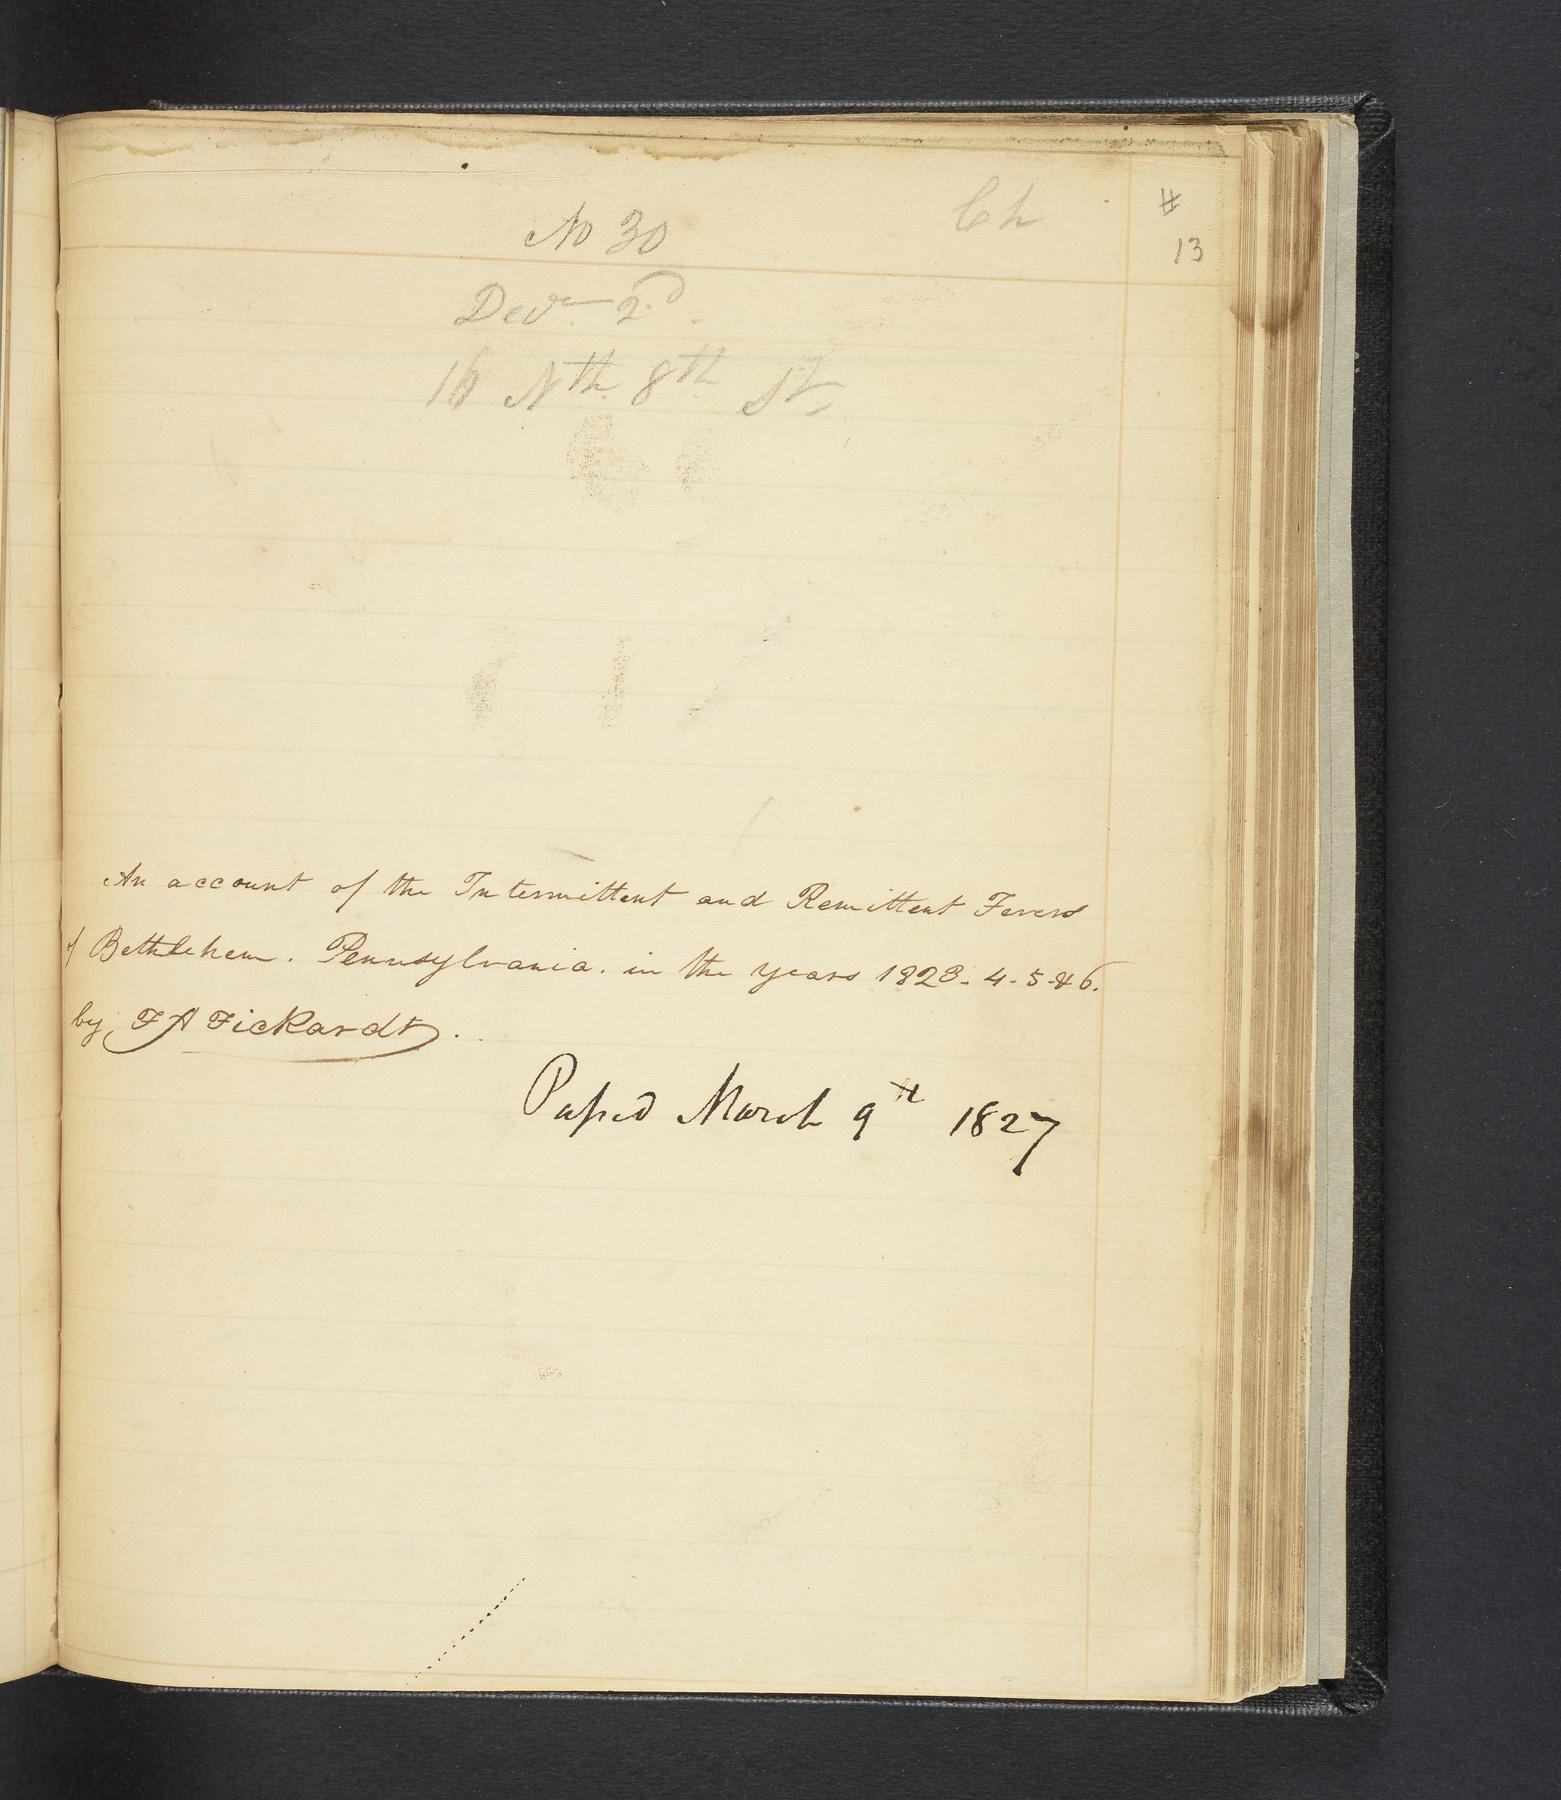 No 30
Ch
#
13
2d
16 Nth 8th St
An account of the Intermittent and Remittent Fevers
of Bethlehem. Pennsylvania. in the years 1823-4-5-&6.
by F A Fickardt.
Passed March 9th 1827